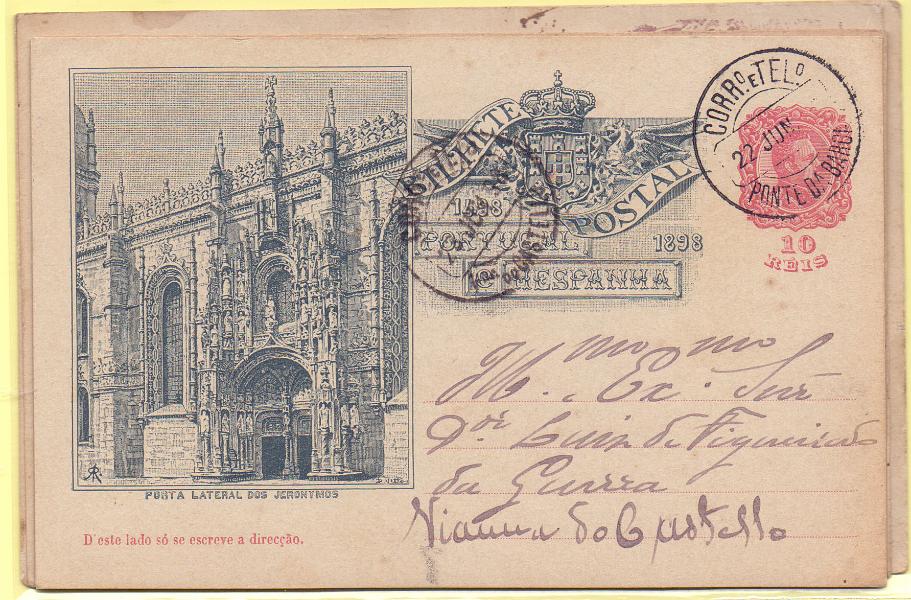 BILHETE POSTAL
1498
1898
PORTUGAL
E HESPANHA
CORRO. E TELO.
22 JUN
PONTE DA BARCA
10
RÉIS
Illmo. Exmo. Snr
Dor. Luiz de Figueiredo
da Guerra
Vianna do Castello
PORTA LATERAL DOS JERONYMOS
D'este lado só se escreve a direcção.